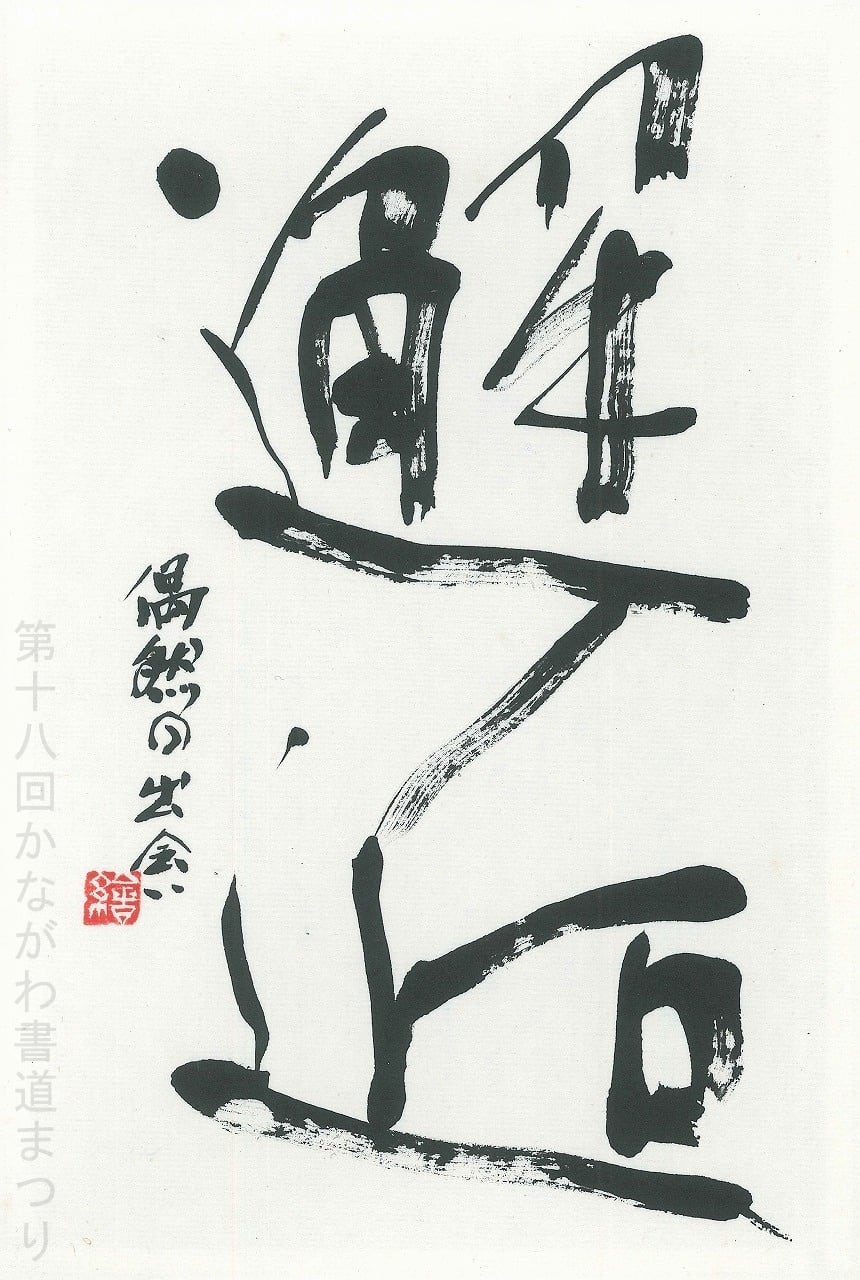 邂逅
偶然の出会い
絵
第十八回かながわ書道まつり